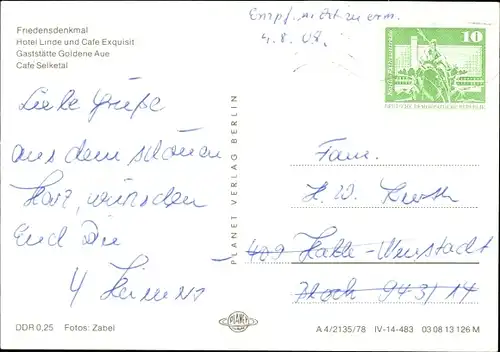 Friedensdenkmal
Hotel Linde und Cafe Exquisit
Gaststätte Goldene Aue
Cafe Selketal
Empf. nicht zu erm.
4.8.08.
10
DEUTSCHE DEMOKRATISCHE REPUBLIK
Liebe Grüße
aus dem schönen
Harz, wünschen
Euch Die
4
PLANET VERLAG BERLIN
Fam.
H. W.
409 Halle-Neustadt
Block 943/14
PLANET
DDR 0,25 Fotos: Zabel
A 4/2135/78 IV-14-483 03 08 13 126 M